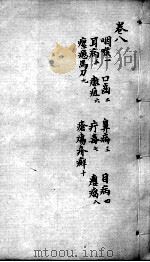 卷八
咽喉一 口齒二 鼻病三 目病四
耳病五 癰疽六 疔毒七 癭瘤八
瘰癧馬刀九 疮瘍疥癬十